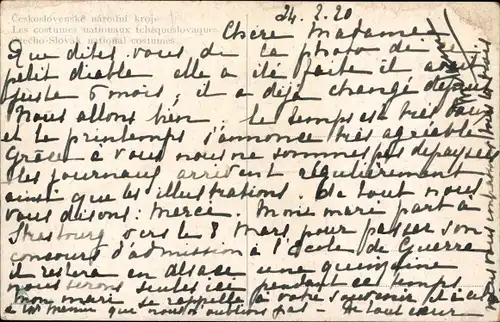 Československé národní kroje
Les costumes nationaux tchéquoslovaques
Czecho-Slovak national costumes
24.2.20
Chère Madame
Que dites-vous de la photo de ce
petit diable elle a été faite il avait
juste 6 mois, il a déjà changé depuis
Nous allons bien. le temps est très doux
et le printemps s'annonce très agréable
Grâce à vous nous ne sommes pas dépaysés
les journaux arrivent régulièrement
ainsi que les illustrations. De tout nous
vous disons: merci. Mon mari part à
Strasbourg vers le 8 Mars pour passer son
concours d'admission à l'École de Guerre
il restera en Alsace une quinzaine
nous serons seules ici pendant ce temps
Mon mari se rappelle à votre souvenir et
que nous n'oublions pas - De tout cœur